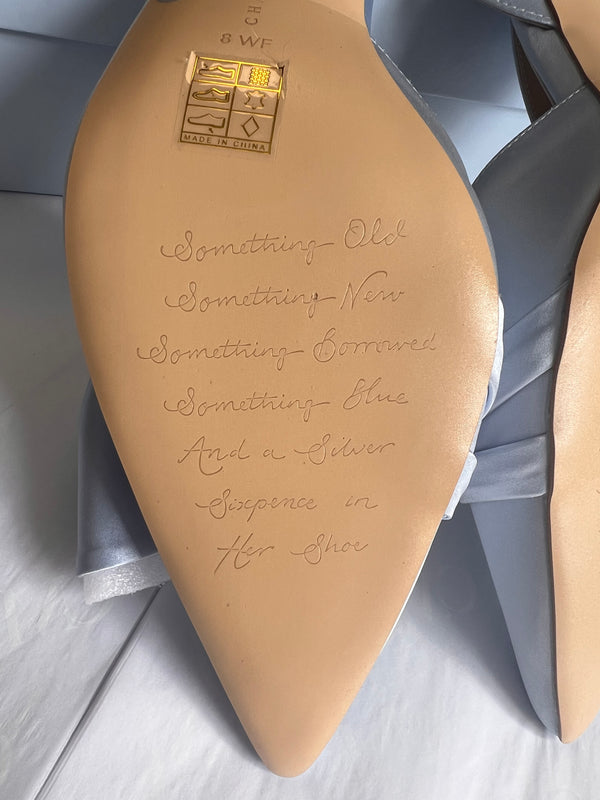 CH
8 WF
MADE IN CHINA
Something Old
Something New
Something Borrowed
Something Blue
And a Silver
Sixpence in
Her Shoe